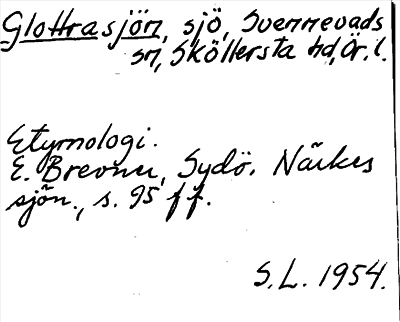 Glottrasjön, sjö, Svennevads
sn, Sköllersta hd, Ör. l.
Etymologi.
E. Brevner, Sydö. Närkes
sjön., s. 95 ff.
S.L. 1954.